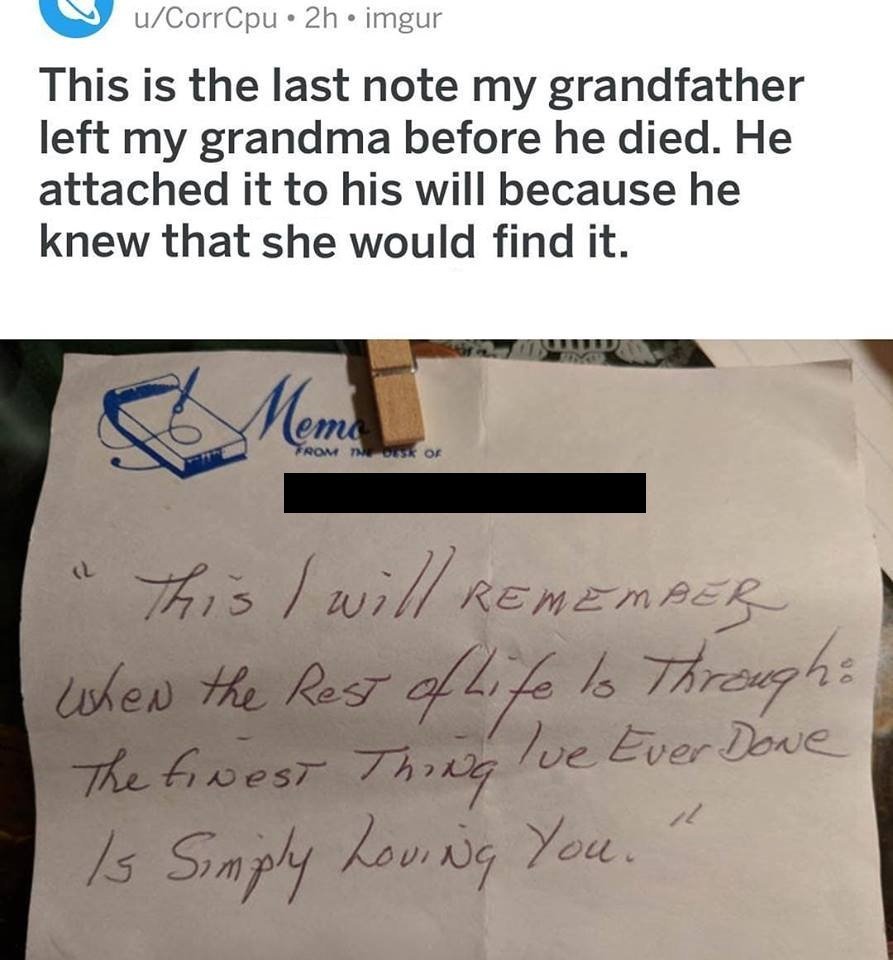 u/CorrCpu • 2h • imgur
This is the last note my grandfather
left my grandma before he died. He
attached it to his will because he
knew that she would find it.
Memo
FROM THE DESK OF
" This I will REMEMBER
When the Rest of Life Is Through:
The finest Thing I've Ever Done
Is Simply Loving You. "